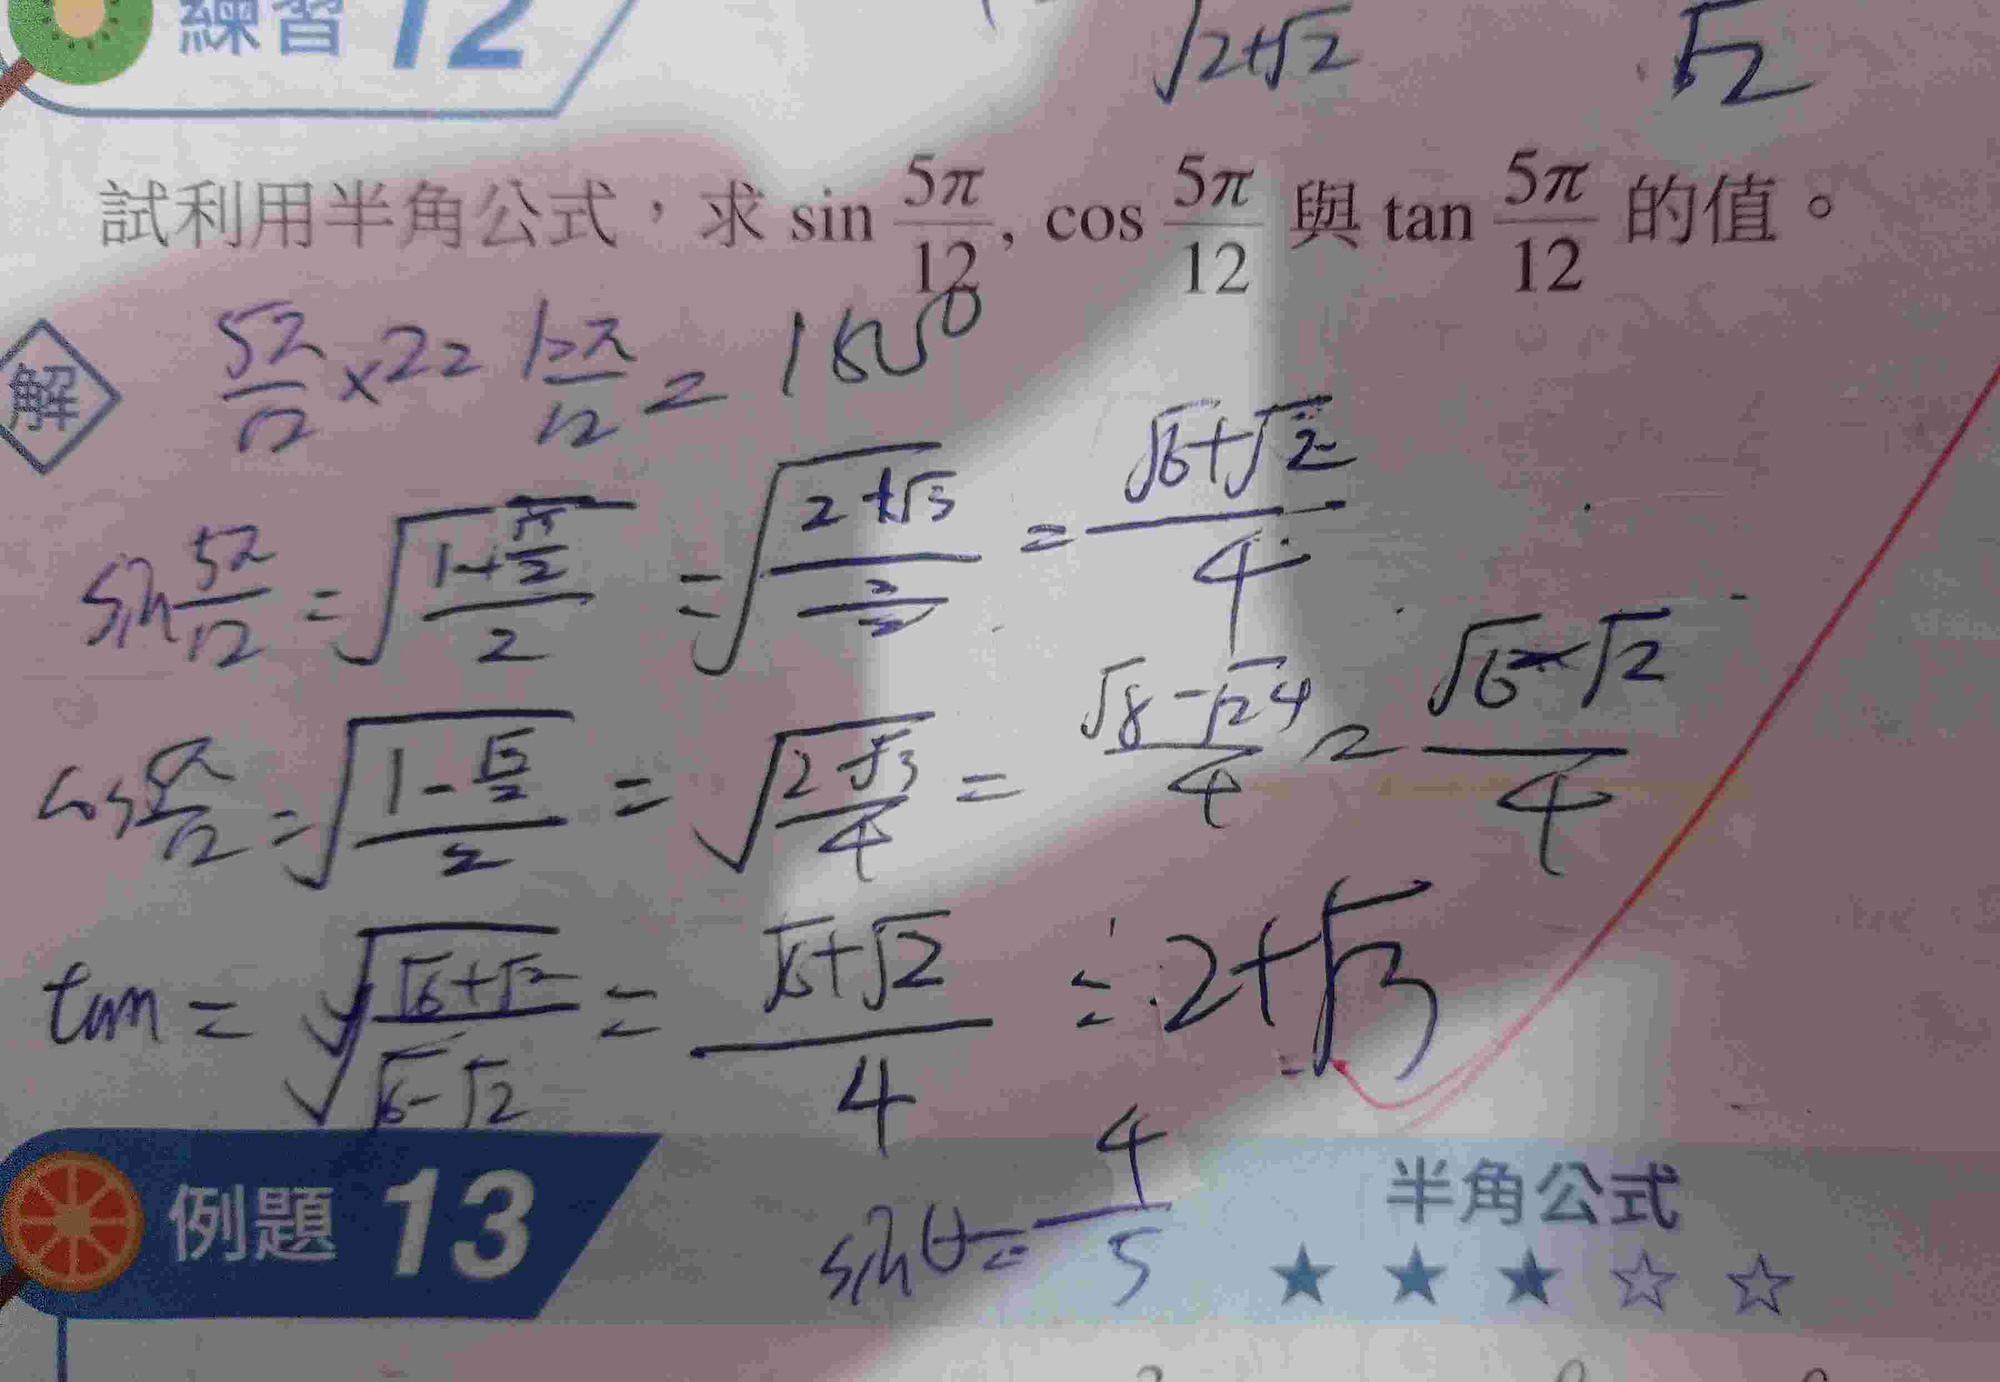 練習 12
√2+√2 √2
試利用半角公式，求 sin 5π/12, cos 5π/12 與 tan 5π/12 的值。
解
5π/12 ×2=
sin 5π/12 = √((1+√3/2)/2) = = (√6+√2)/4
cos 5π/12 = √((1-√3/2)/2) = √((2-√3)/4) = = (√6-√2)/4
tan = √((√6+√2)/(√6-√2)) = (√6+√2)/4 = 2+√3
例題 13
sinθ= 4/5
半角公式
★ ★ ★ ☆ ☆